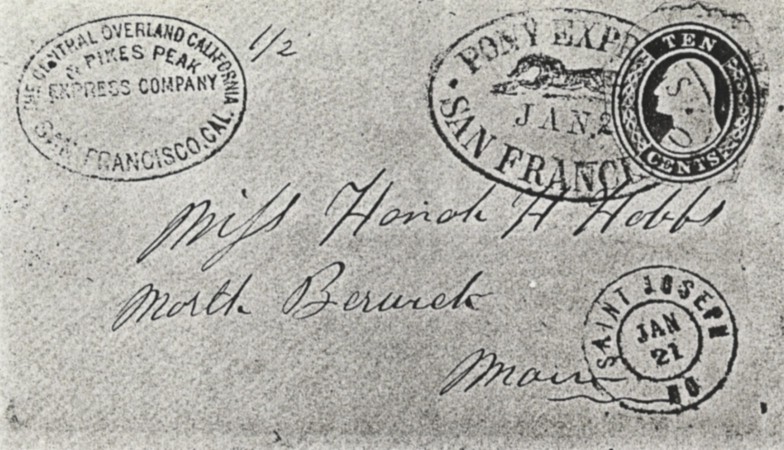 THE CENTRAL OVERLAND CALIFORNIA
& PIKES PEAK
EXPRESS COMPANY
SAN FRANCISCO, CAL.
1/2
PONY EXPR
JAN. 2
SAN FRANCI
TEN
CENTS
Miss Honah H Hobbs
North Berwick
Maine
SAINT JOSEPH
JAN
21
MO